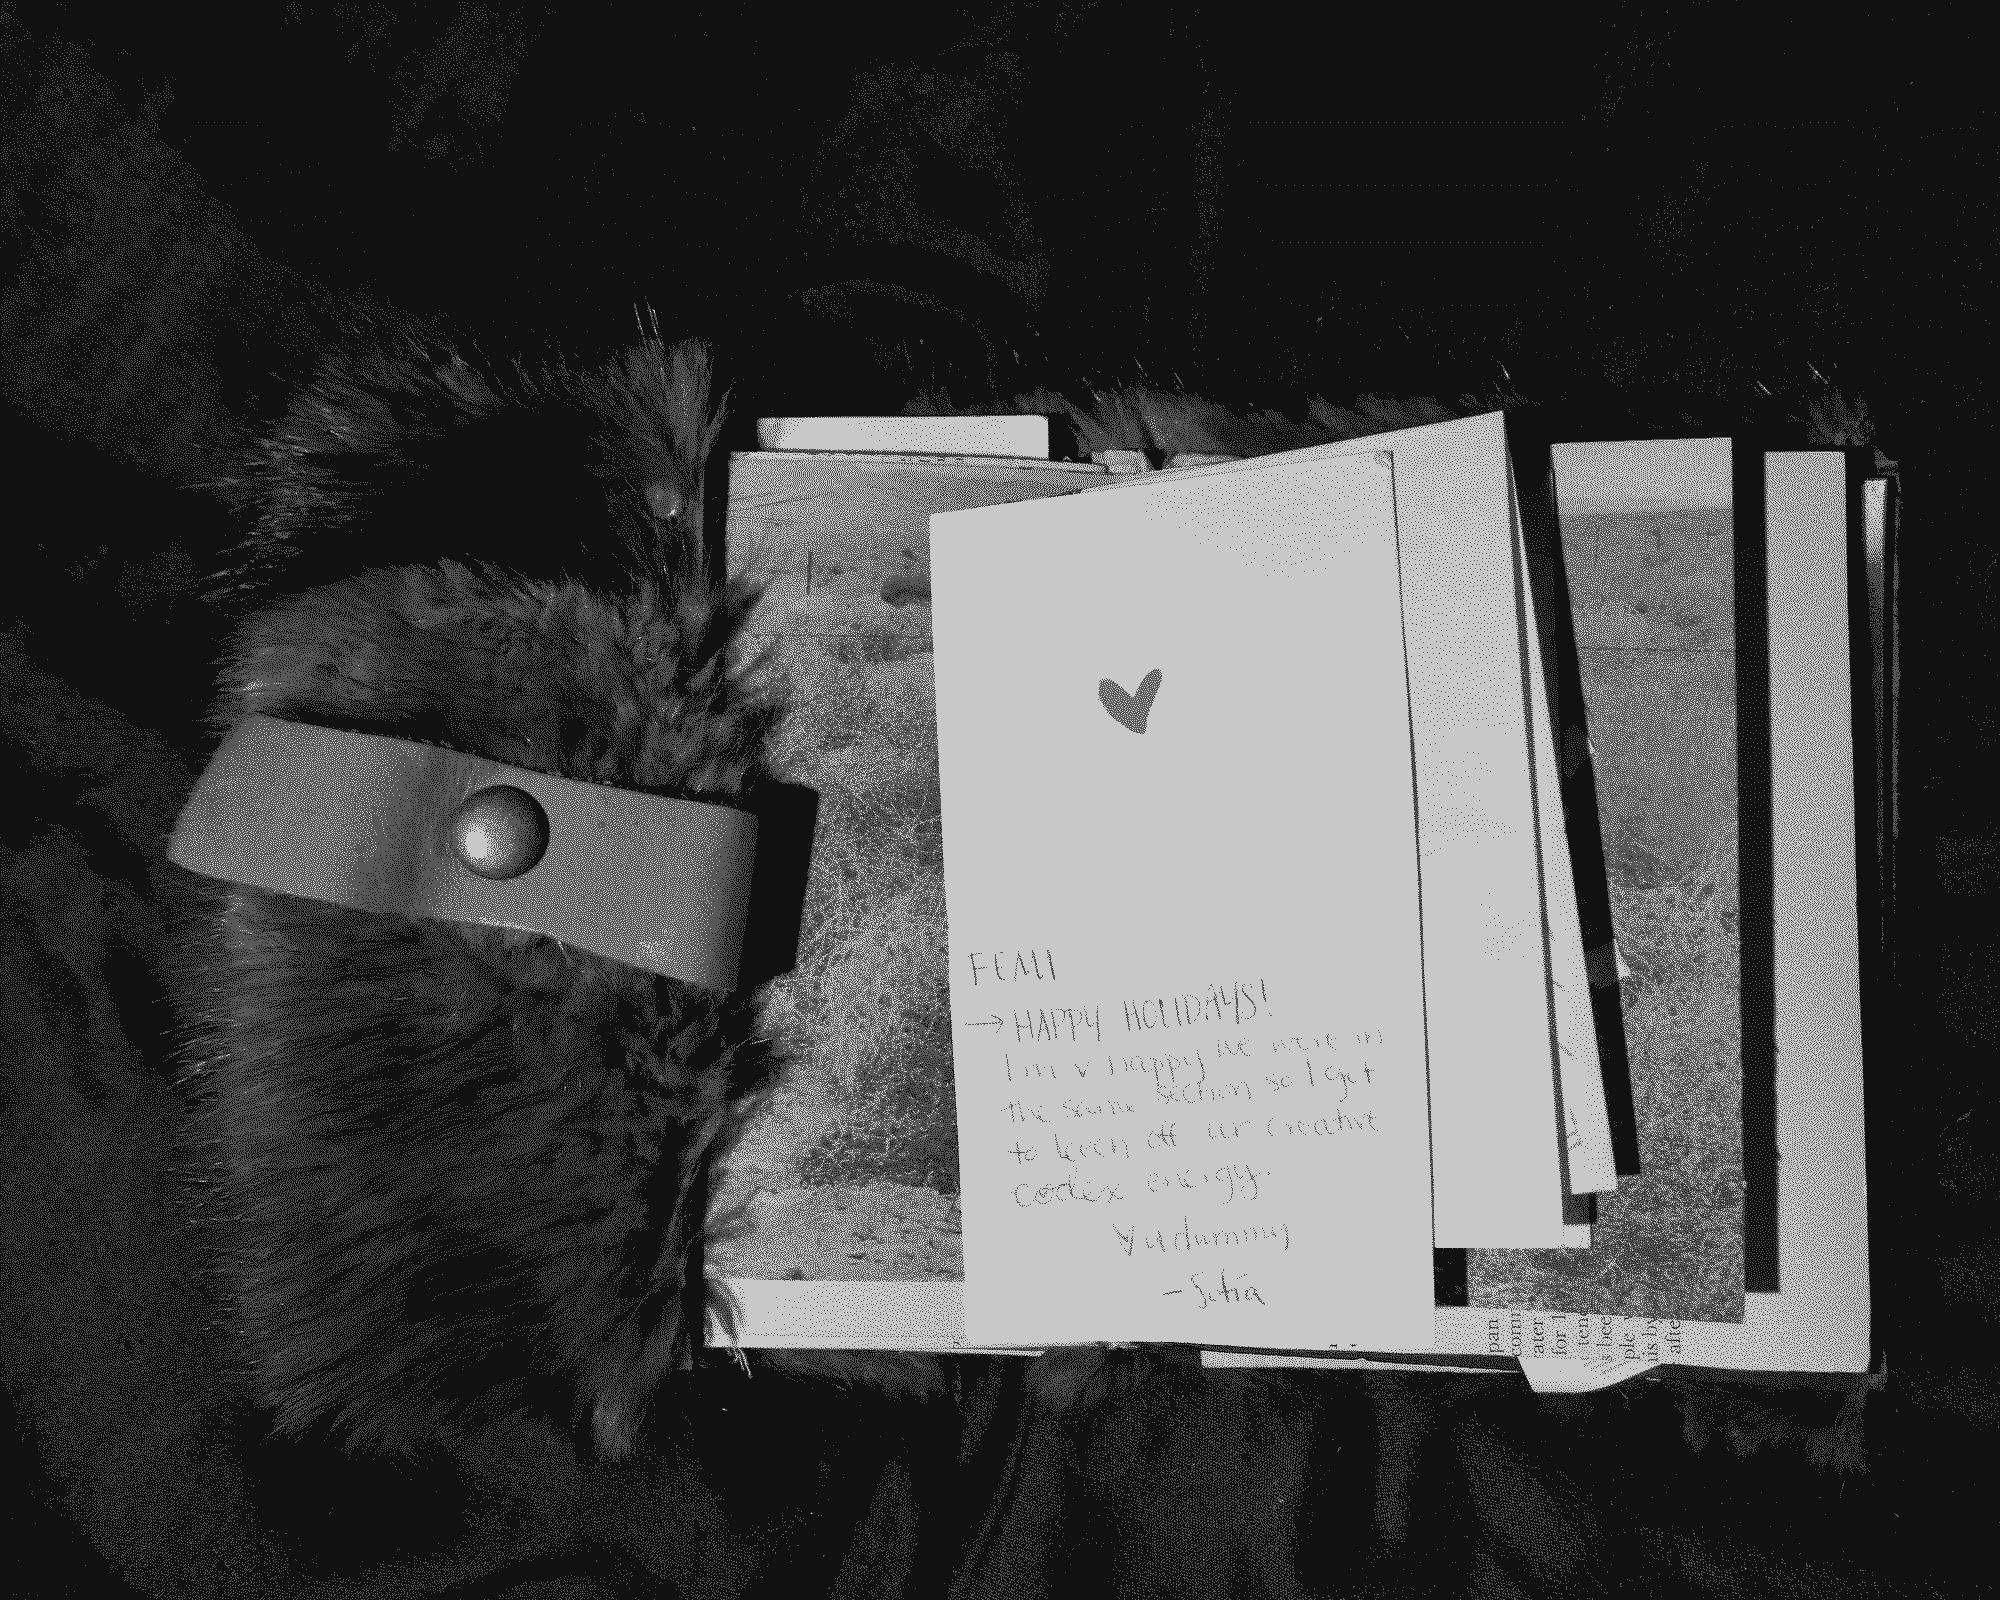 FEMI
→ HAPPY HOLIDAYS!
I'm v happy we were in
the same section so I got
to keep off ur creative
codex energy.
Yudummy
- Sofia
pan
comm
ater
for l
tem
s bee
ple
us by
afte